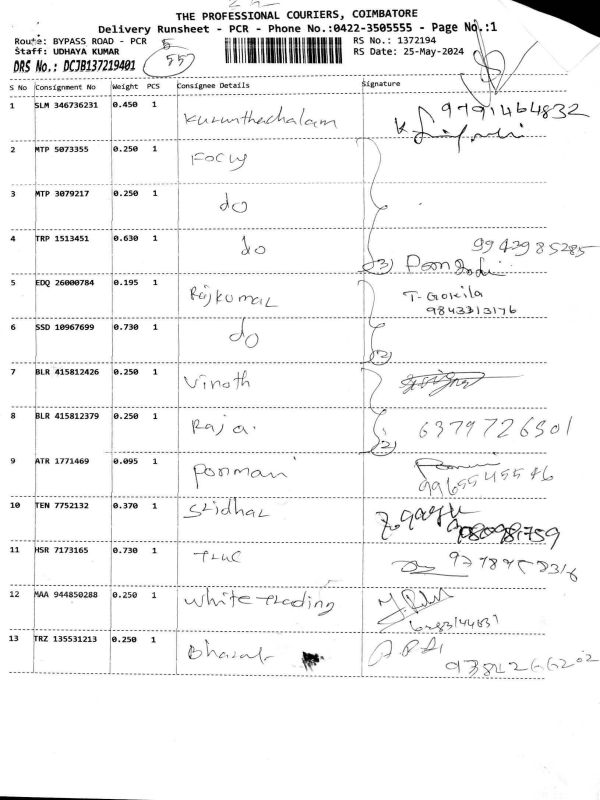 THE PROFESSIONAL COURIERS, COIMBATORE
Delivery Runsheet - PCR - Phone No.:0422-3505555 - Page No.:1
Route: BYPASS ROAD - PCR
RS No.: 1372194
Staff: UDHAYA KUMAR
RS Date: 25-May-2024
DRS No.: DCJB137219401
S No Consignment No Weight PCS Consignee Details Signature
1 SLM 346736231 0.450 1 Kurunthachalam 9791464832
2 MTP 5073355 0.250 1 Focus
3 MTP 3079217 0.250 1 do
4 TRP 1513451 0.630 1 do 9942985285
(3)
5 EDQ 26000784 0.195 1 Rajkumar T-Gokila
9843313176
6 SSD 10967699 0.730 1 do (2)
7 BLR 415812426 0.250 1 Vinoth
8 BLR 415812379 0.250 1 Raja. (2) 6379726301
9 ATR 1771469 0.095 1 Ponmani
9965545546
10 TEN 7752132 0.370 1 Sridhar
11 HSR 7173165 0.730 1
12 MAA 944850288 0.250 1 White Trading
13 TRZ 135531213 0.250 1